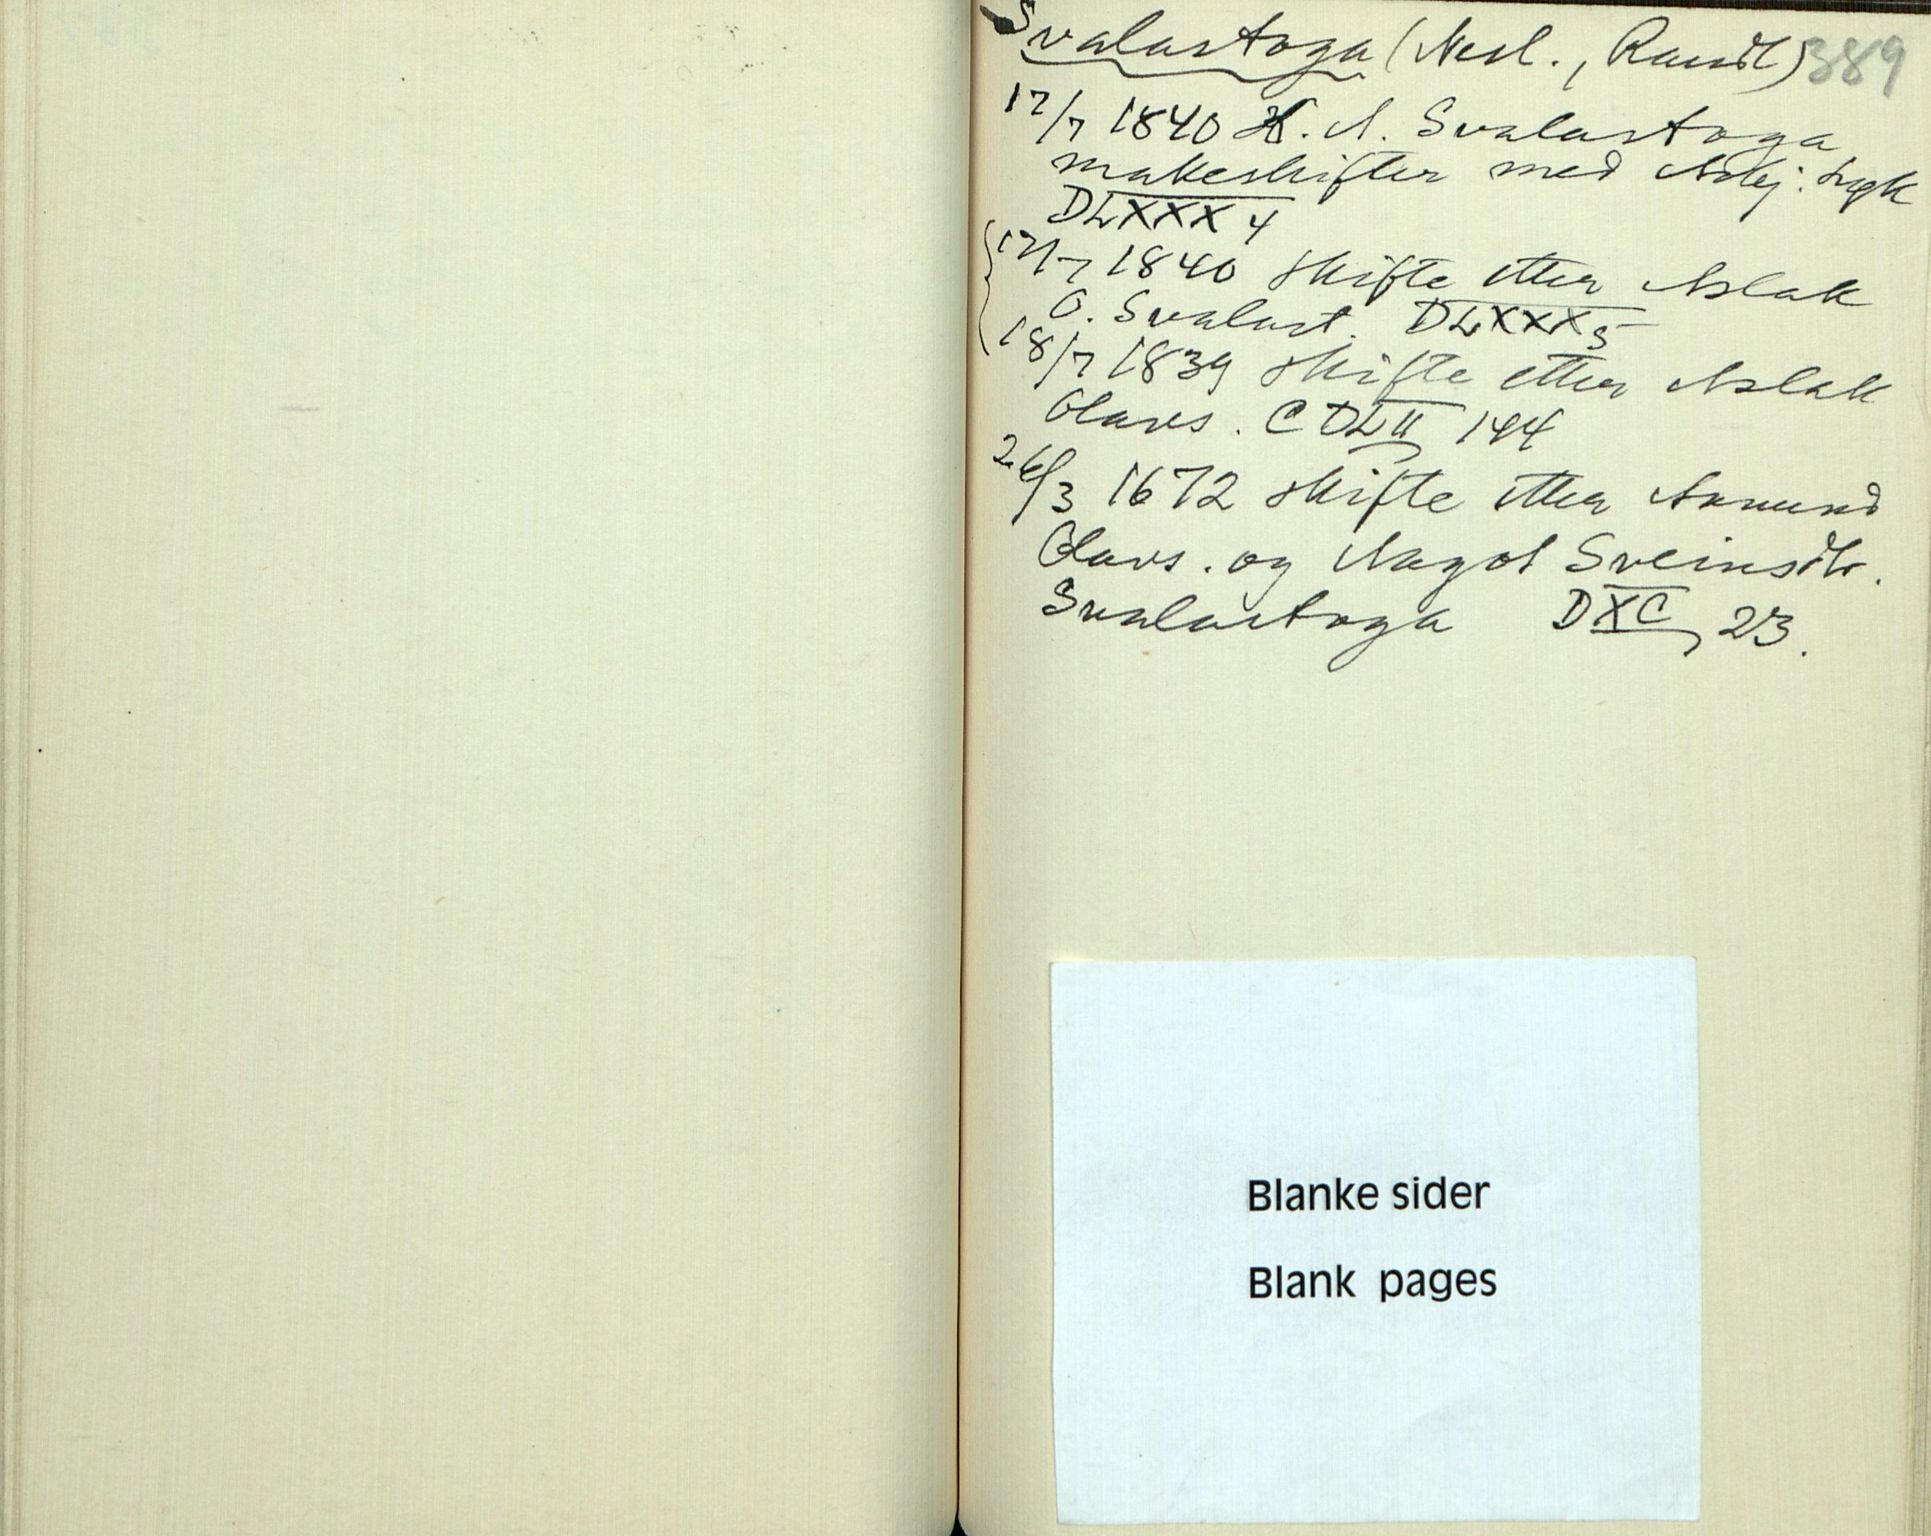 Svalastoga (Nesl., Raudl) 389
17/7 1840 H. A. Svalastoga
makeskifter med
DLXXX 4
17/7 1840 skifte etter Aslak
O. Svalast. DLXXX 5
18/7 1839 skifte etter Aslak
Olavs. CDLII 144
26/3 1672 skifte etter Asmund
Olavs. og Aagot Sveinsdtr.
Svalastoga DXC 23.
Blanke sider
Blank pages